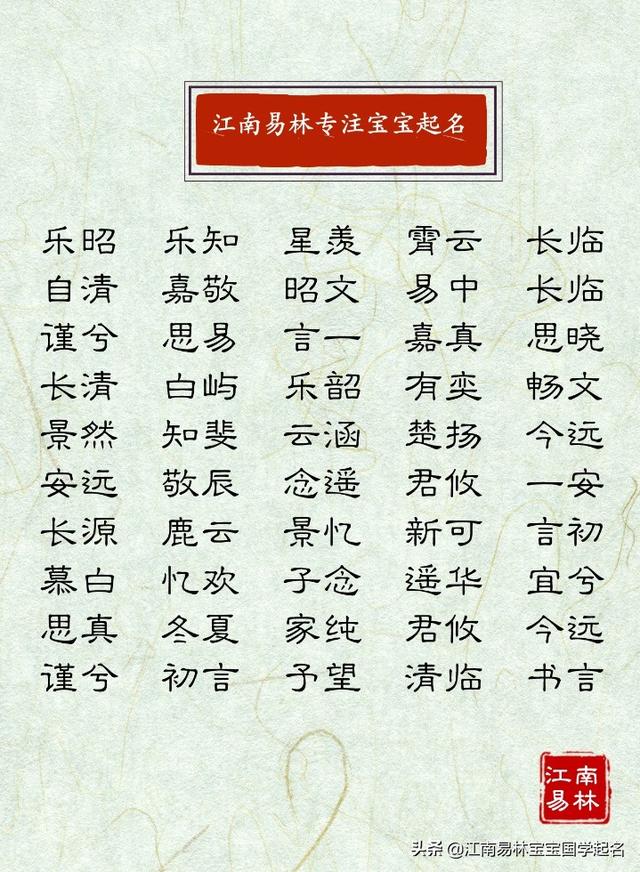 江南易林专注宝宝起名
乐昭 乐知 星羡 霄云 长临
自清 嘉敬 昭文 易中 长临
谨兮 思易 言一 嘉真 思晓
长清 白屿 乐韶 有奕 畅文
景然 知斐 云涵 楚扬 今远
安远 敬辰 念遥 君攸 一安
长源 鹿云 景忆 新可 言初
慕白 忆欢 子念 遥华 宜兮
思真 冬夏 家纯 君攸 今远
谨兮 初言 予望 清临 书言
江南
易林
头条 @江南易林宝宝国学起名